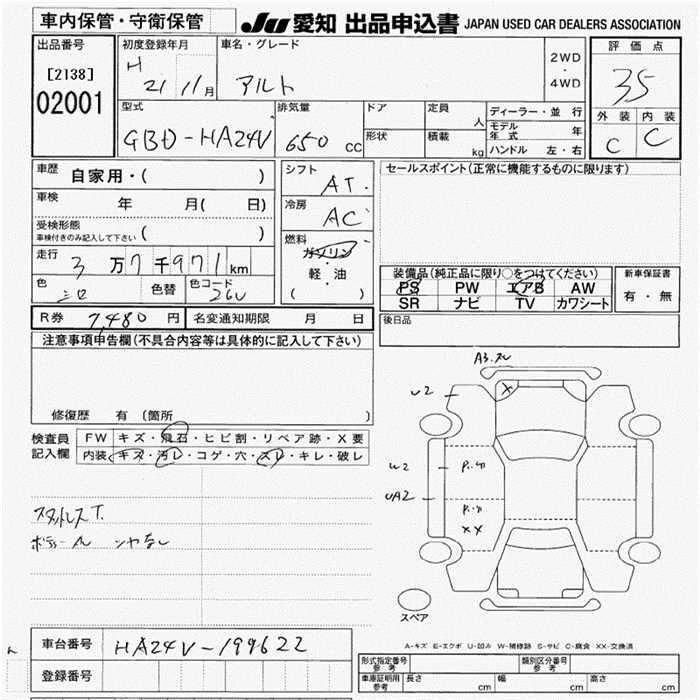 車内保管・守衛保管
JU 愛知 出品申込書 JAPAN USED CAR DEALERS ASSOCIATION
出品番号
[2138]
02001
初度登録年月
H 21 年 11 月
車名・グレード
アルト
2WD
・
4WD
評価点
3.5
外装 内装
C C
型式
GBD-HA24V
排気量
650 cc
ドア
形状
定員 人
積載 kg
ディーラー・並行
モデル年式 年
ハンドル 左・右
車歴 自家用・( )
車検 年 月( 日)
受検形態
車検付きのみ記入して下さい ( )
走行 3万7千971km
色 色替 色コード 26U
シフト AT.
冷房 AC
燃料 ガソリン
・
軽・油
( )
セールスポイント(正常に機能するものに限ります)
装備品(純正品に限り○をつけてください)
PS PW エアB AW
SR ナビ TV カワシート
新車保証書
有・無
R券 7,480 円 名変通知期限 月 日
後日品
注意事項申告欄(不具合内容等は具体的に記入して下さい)
修復歴 有 (箇所 )
検査員
記入欄
FW キズ・飛石・ヒビ割・リペア跡・X要
内装 キズ・汚レ・コゲ・穴・スレ・キレ・破レ
スタットレスT.
A3.スレ
X
U2
U2
UA2
P.ワ
P.ワ
XX
スペア
A-キズ E-エクボ U-凹ミ W-補修跡 S-サビ C-腐食 XX-交換済
車台番号 HA24V-199622
登録番号
型式指定番号
参考
類別区分番号
参考
車庫証明用
参考
長さ cm 幅 cm 高さ cm